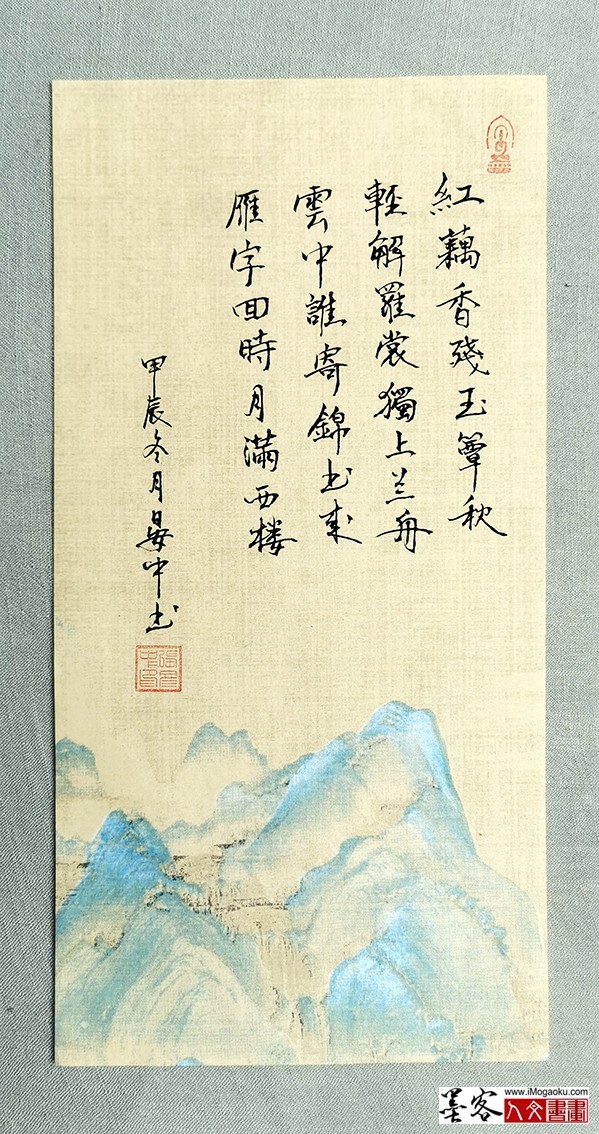 紅藕香殘玉簟秋
輕解羅裳獨上兰舟
雲中誰寄錦书來
雁字回時月滿西楼
甲辰冬月晏中书
墨客
www.iMogaoku.com
人文書畫